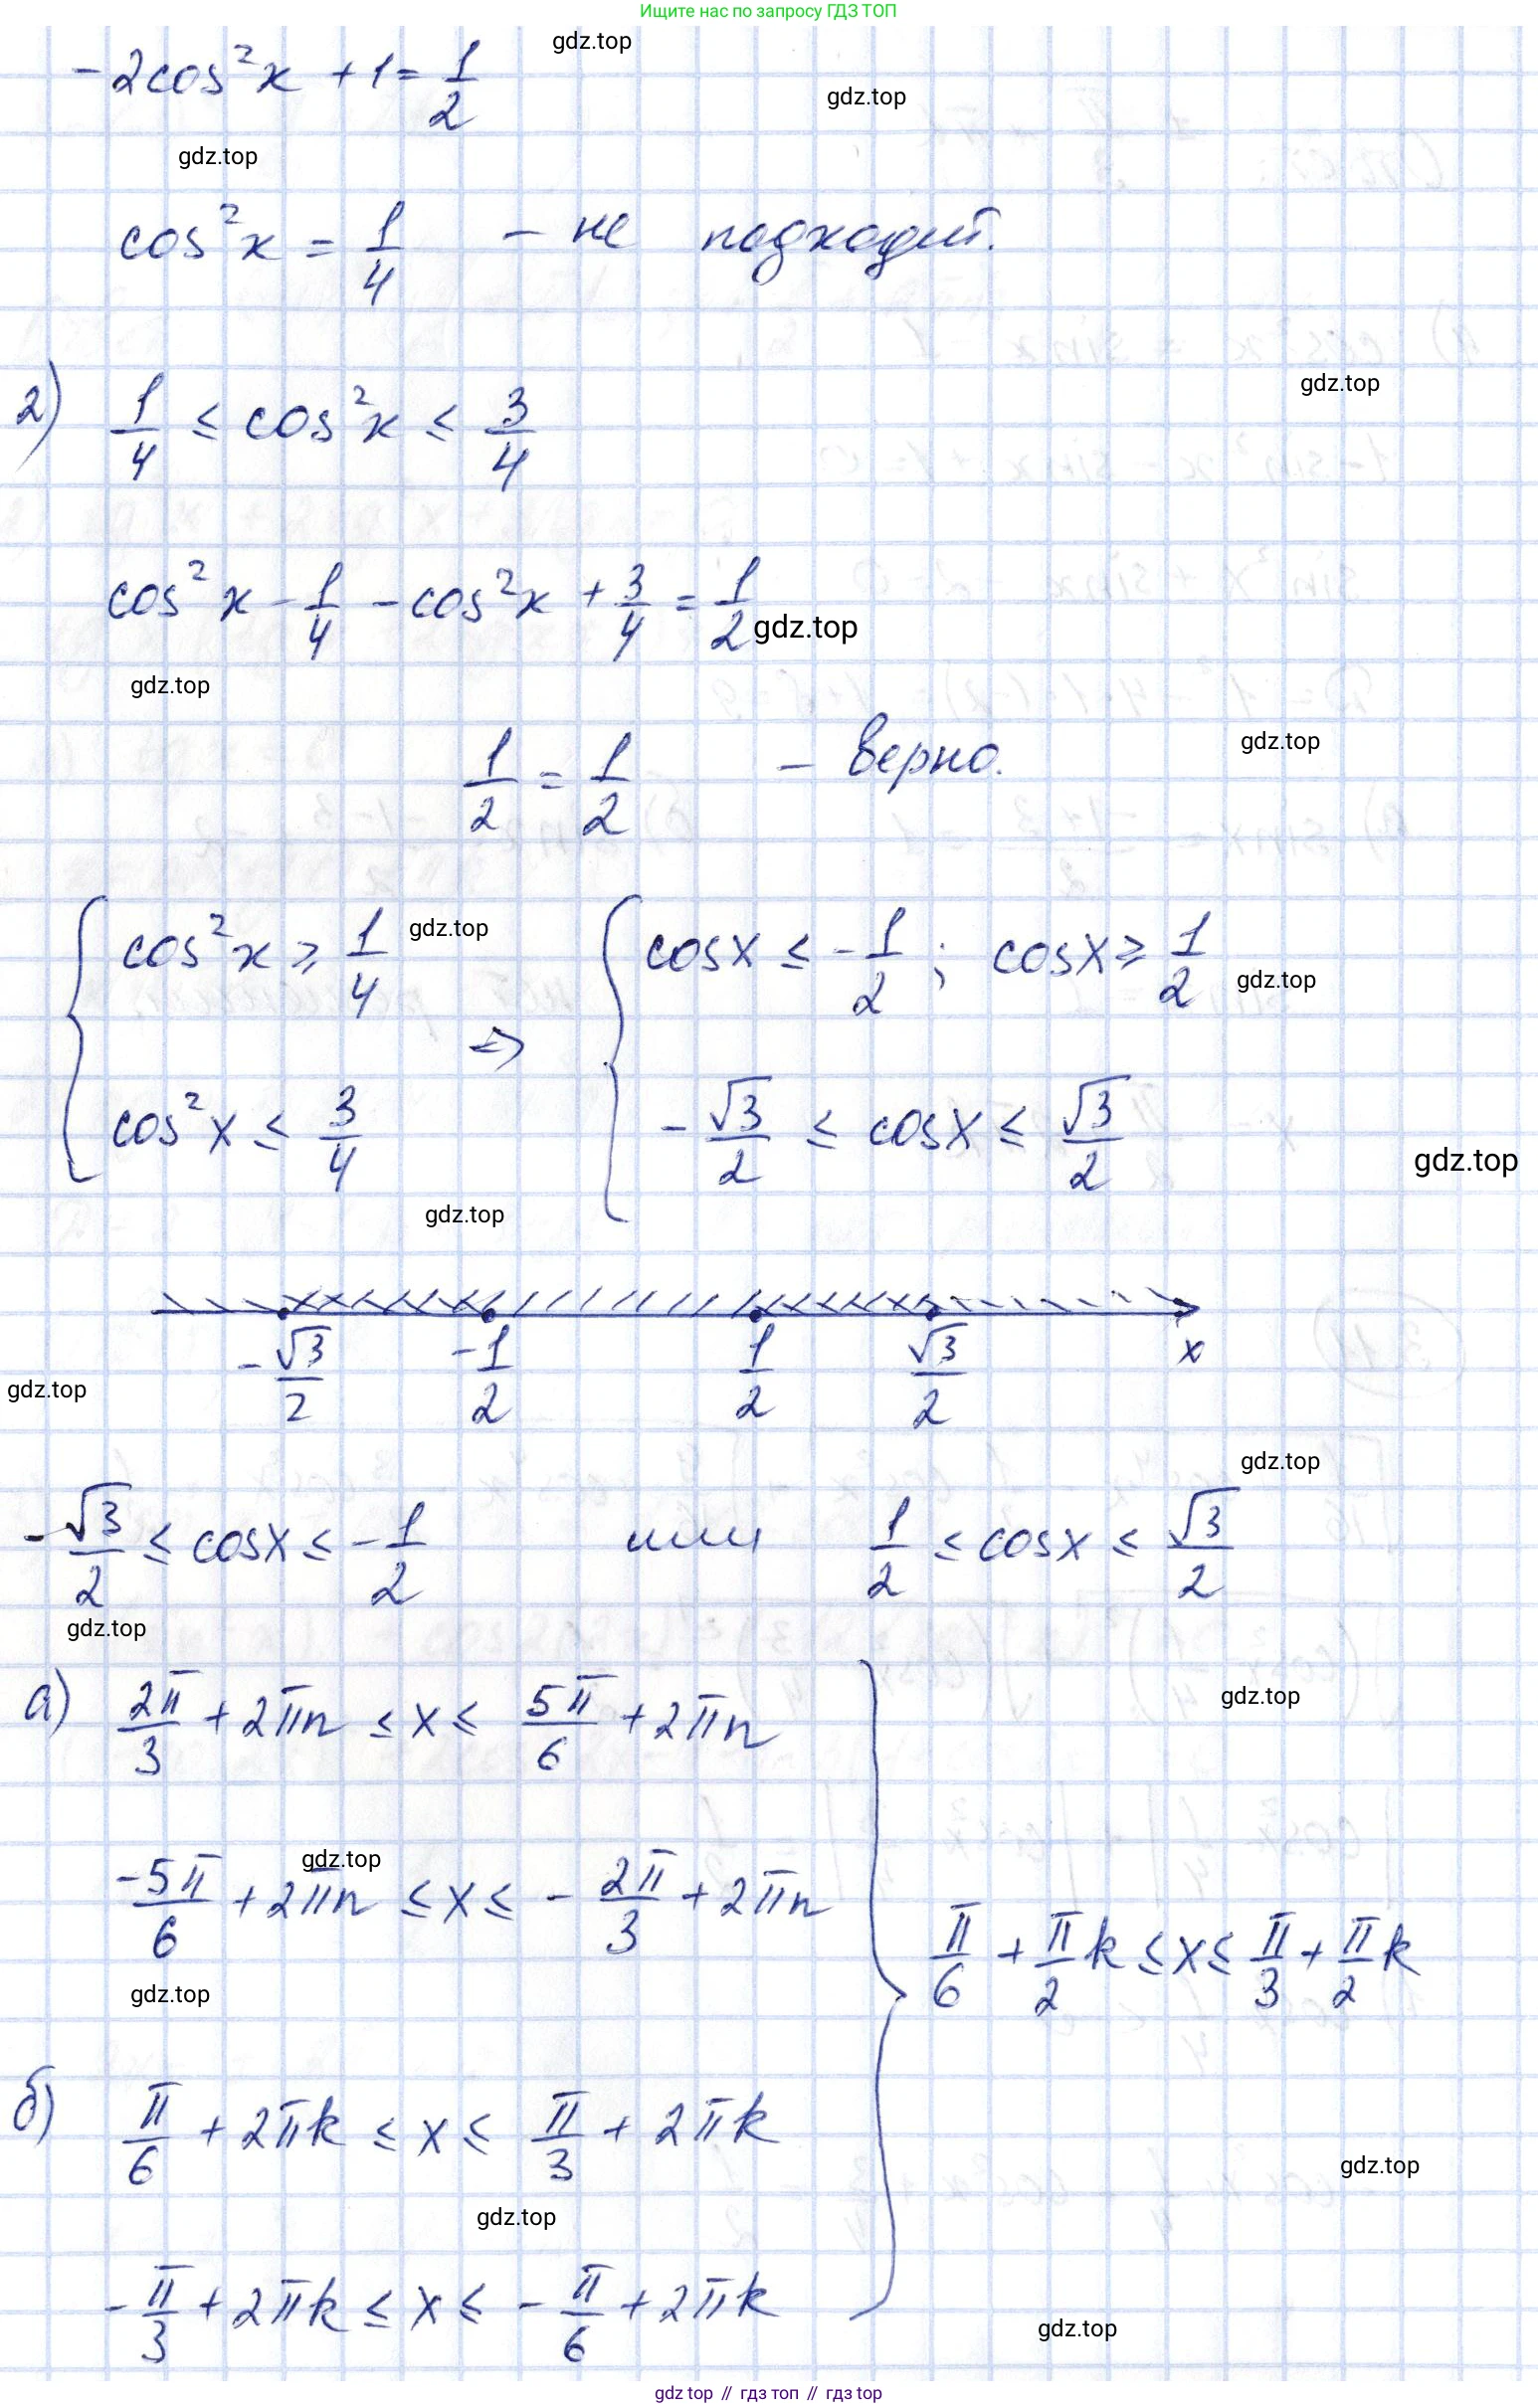 Ищите нас по запросу ГДЗ ТОП
-2cos²x + 1 = 1/2
gdz.top
gdz.top
gdz.top
cos²x = 1/4 - не подходит.
2) 1/4 ≤ cos²x ≤ 3/4
gdz.top
cos²x - 1/4 - cos²x + 3/4 = 1/2
gdz.top
gdz.top
1/2 = 1/2 - верно.
gdz.top
{ cos²x ≥ 1/4 ⇒ { cosx ≤ -1/2 ; cosx ≥ 1/2
gdz.top
gdz.top
cos²x ≤ 3/4 -√3/2 ≤ cosx ≤ √3/2
gdz.top
gdz.top
-√3/2 -1/2 1/2 √3/2 x
gdz.top
gdz.top
-√3/2 ≤ cosx ≤ -1/2 или 1/2 ≤ cosx ≤ √3/2
gdz.top
а) 2π/3 + 2πn ≤ x ≤ 5π/6 + 2πn
gdz.top
gdz.top
-5π/6 + 2πn ≤ x ≤ -2π/3 + 2πn
π/6 + π/2 k ≤ x ≤ π/3 + π/2 k
gdz.top
б) π/6 + 2πk ≤ x ≤ π/3 + 2πk
gdz.top
gdz.top
-π/3 + 2πk ≤ x ≤ -π/6 + 2πk
gdz.top
gdz top // гдз топ // гдз top